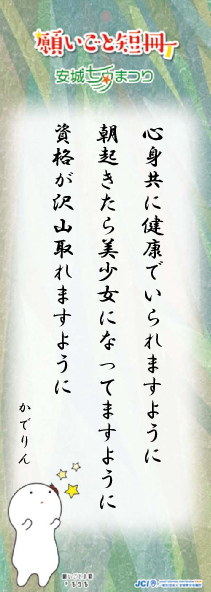 願いごと短冊
安城七夕まつり
心身共に健康でいられますように
朝起きたら美少女になってますように
資格が沢山取れますように
かでりん
JCI